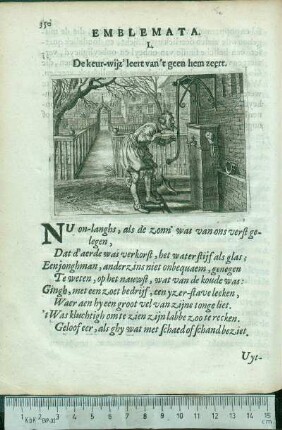 350
EMBLEMATA.
I.
De keur-wijz' leert van't geen hem zeert.
NU on-langhs, als de zonn' was van ons verst ge-
legen,
Dat d'aerde was verkorst, het water stijf als glas:
Een jonghman, anderzins niet onbequaem, genegen
Te weten, op het nauwst, wat van de koude was:
Gingh, met een zoet bedrijf, een yzer-stave lecken,
Waer aen hy een groot vel van zijne tonge liet.
't Was kluchtigh om te zien zijn labbe zoo te recken.
Geloof eer, als ghy wat met schaed of schand beziet.
Uyt-
1 2 3 4 5 6 7 8 9 10 11 12 13 14 15
cm